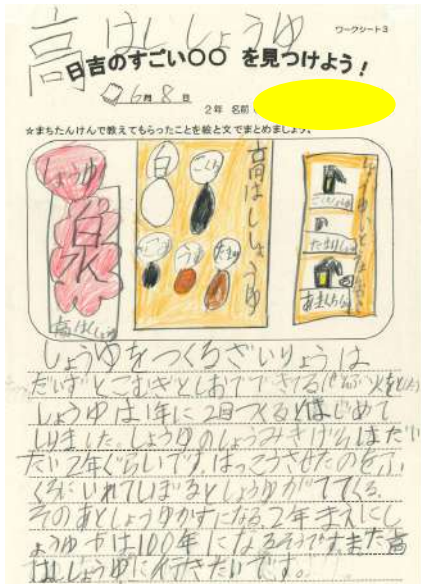 高はししょうゆ
ワークシート3
日吉のすごい○○ を見つけよう!
6月8日
2年 名前
☆まちたんけんで教えてもらったことを絵と文でまとめましょう。
しょうゆ
高はししょうゆ
白
高はししょうゆ
しょうゆをつくるざいりょうは
だいずとこむぎとしおでできる
しょうゆは1年に2回つくるとはじめて
しりました。しょうゆのしょうみきげんはだい
たい2年ぐらいです。はっこうさせたのをふ
くろにいれてしぼるとしょうゆがでてくる。
そのあとしょうゆかすになる。2年まえにし
ょうゆやは100年になるそうです。また高
はししょうゆに行きたいです。